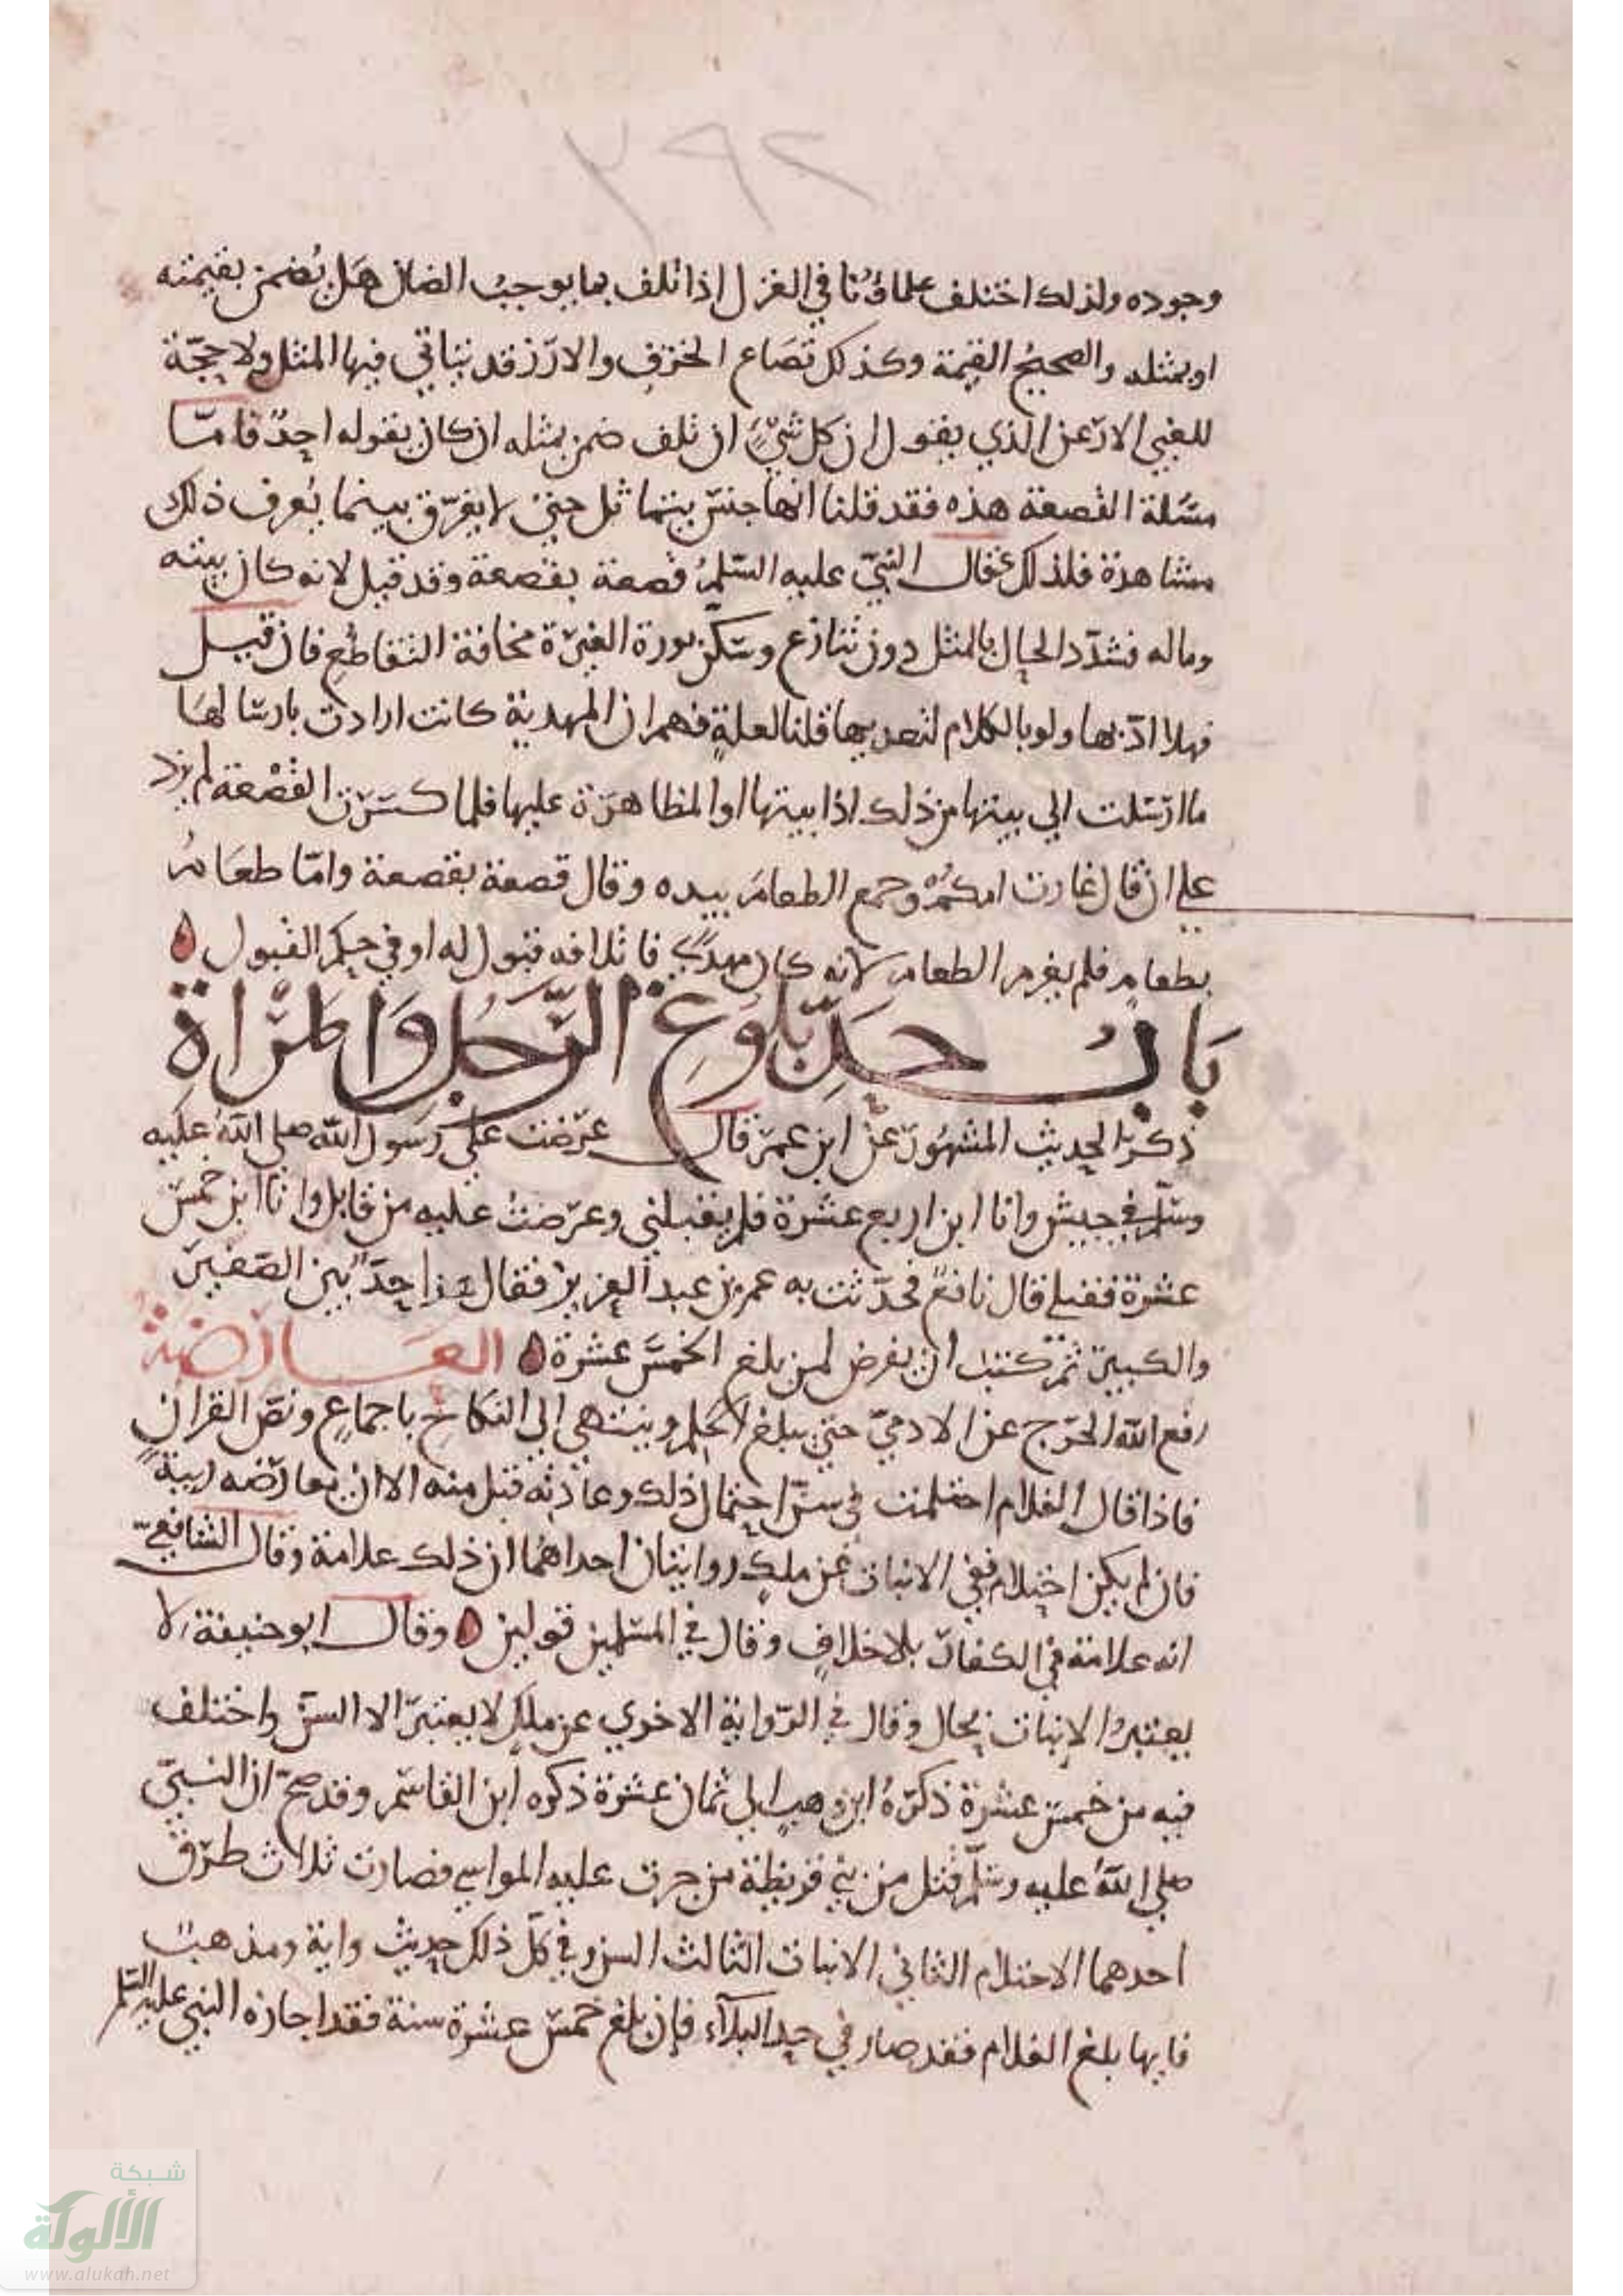 ٢٩٢
وجوده ولذلك اختلف علماؤنا في الغزل اذا تلف بما يوجب الضمان هل يُضمن بقيمته
او بمثله والصحيح القيمة وكذلك قصاع الخزف والارز قد يتاتي فيها المثل ولا حجّة
للغبي الارعن الذي يقول ان كل شيٍ ان تلف ضمن بمثله ان كان يقوله احدٌ فامّا
مسَلة القصعة هذه فقد قلنا انها جنس يتماثل حتي لا يفرّق بينهما يُعرف ذلك
مشاهدة فلذلك فقال النبيّ عليه السّلمُ قصعة بقصعة وقد قيل لانه كان بيته
وماله فسَدّد الحال بالمثل دون تنازع وسكّن سورة الغيرة مخافة التقاطُع فان قيل
فهلا ادّبها ولو بالكلام لتعديها قلنا لعلة فهم ان المهدية كانت ارادت بارسَالهَا
ما ارسَلت الي بيتها من ذلك اذايتها او المظاهرة عليها فلما كسَرَت القصْعة لم يزد
علي ان قال غارت امكمُ وجمع الطعامَ بيده وقال قصعة بقصعة وامّا طعامُ
بطعامٍ فلم يغرم الطعام لانه كان مهدًي فاتلافه قبول له او في حكم القبول
بَابُ حَدِّ بُلوغِ الرَّجُلِ وَالمَرْاة
ذكرَ الحديث المشهُور عن ابن عمرَ قال عرضت علي رسَول الله صلي الله عليه
وسَلم في جيش وانا ابن اربع عشرة فلم يقبلني وعرضتُ عليه من قابل وانا ابن خمسَ
عشرة فقبلني قال نافعٌ فحدّثت به عمر بن عبد العزيز فقال هذا حدّ بين الصّغيرَ
والكبير ثم كتبَ ان يفرض لمن بلغ الخمسَ عشرة العَارضة
رفع الله الحرج عن الادميّ حتي يبلغ الحلم وينتهي الي النكاحِ باجماعٍ ونصّ القران
فاذا قال الغلام احتلمت في سنّ احتمال ذلك وعادته قبل منه الا ان يعارضه ريبةٌ
فان لم يكن احتلام ففي الانبات عن ملكٍ روايتان احداهُما ان ذلك علامة وقال الشافعيّ
انه علامة في الكفار بلا خلافٍ وقال في المسَلمين قولين وقال ابو حنيفة لا
يعتبرُ الانبات بحال وقال في الرّواية الاخري عن ملكٍ لا يعتبرَ الا السنّ واختلف
فيه من خمسَ عشرة ذكرَهُ ابن وهبٍ الي ثمان عشرة ذكره ابن القاسَم وقد صحّ ان النبيّ
صلي اللهُ عليه وسَلّم قتل من بني قريظة من جرت عليه المواسي فصارت ثلاث طرُق
احدهما الاحتلام الثاني الانبات الثالث السن وفي كلّ ذلك حديث واية ومذهبٌ
فايها بلغ الغلام فقد صار في حد البلاَء فإن بلغ خمسَ عشرة سنة فقد اجازه النبي عليه السّلم
شبكة
الألوكة
www.alukah.net